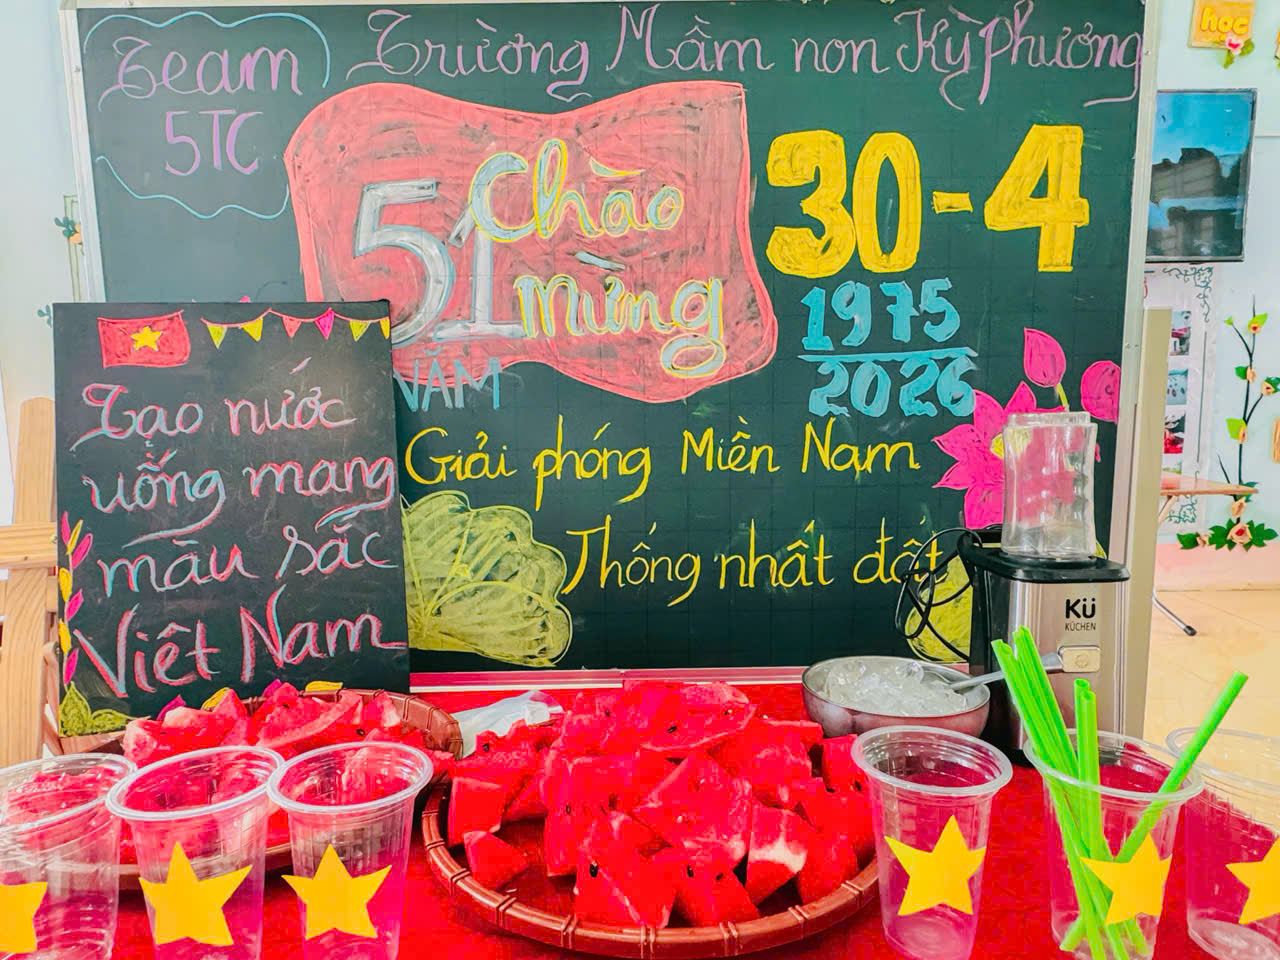 Team
5TC
Trường Mầm non Kỳ Phương
51
NĂM
Chào
mừng
30-4
1975
2026
Giải phóng Miền Nam
Thống nhất đất
Tạo nước
uống mang
màu sắc
Việt Nam
Kü
KÜCHEN
học